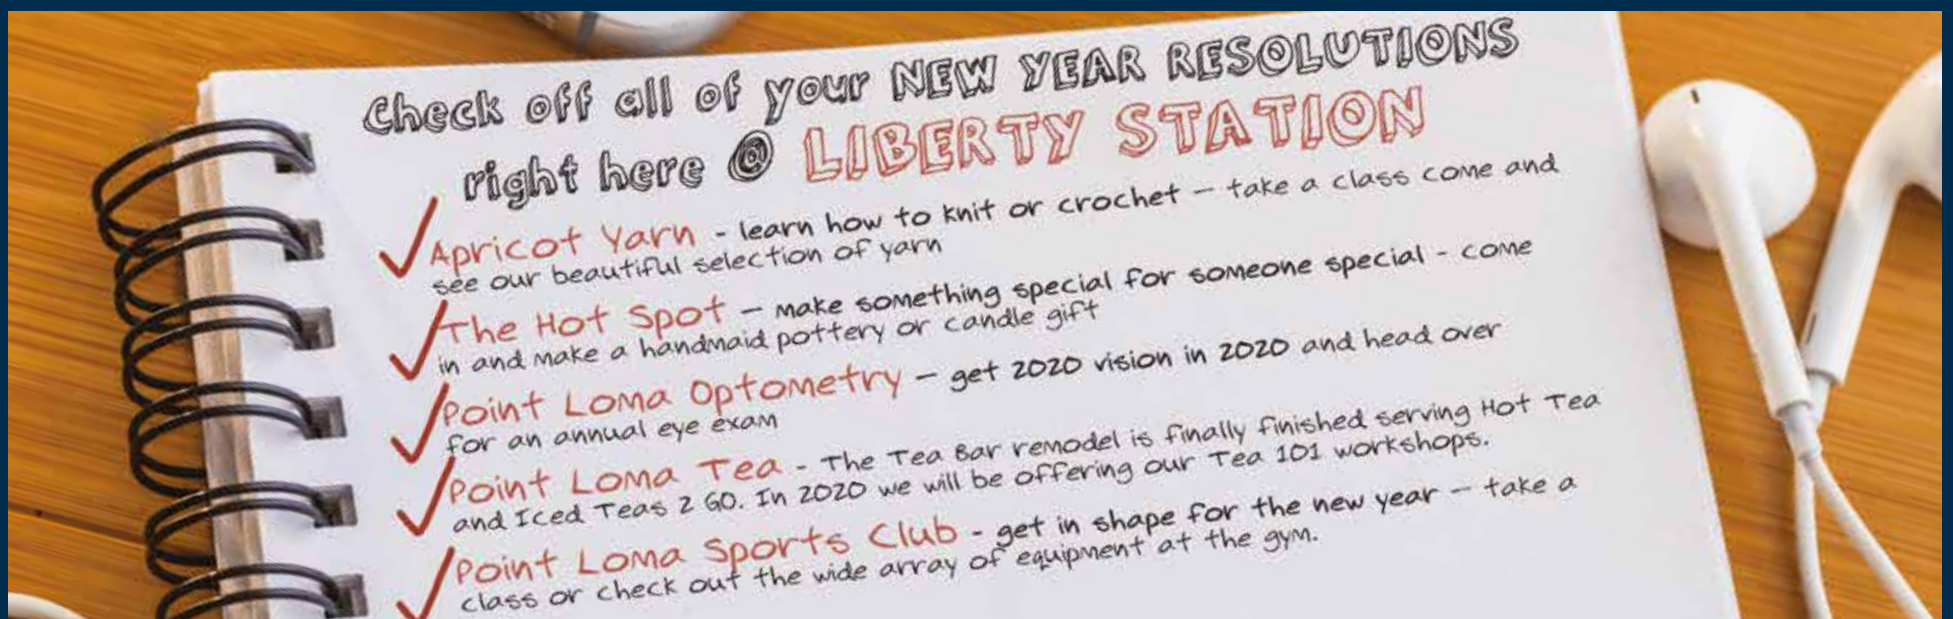 Check off all of your NEW YEAR RESOLUTIONS
right here @ LIBERTY STATION
Apricot Yarn - learn how to knit or crochet – take a class come and
see our beautiful selection of yarn
The Hot Spot – make something special for someone special - come
in and make a handmaid pottery or candle gift
Point Loma Optometry – get 2020 vision in 2020 and head over
for an annual eye exam
Point Loma Tea - The Tea Bar remodel is finally finished serving Hot Tea
and Iced Teas 2 GO. In 2020 we will be offering our Tea 101 workshops.
Point Loma Sports Club - get in shape for the new year – take a
class or check out the wide array of equipment at the gym.